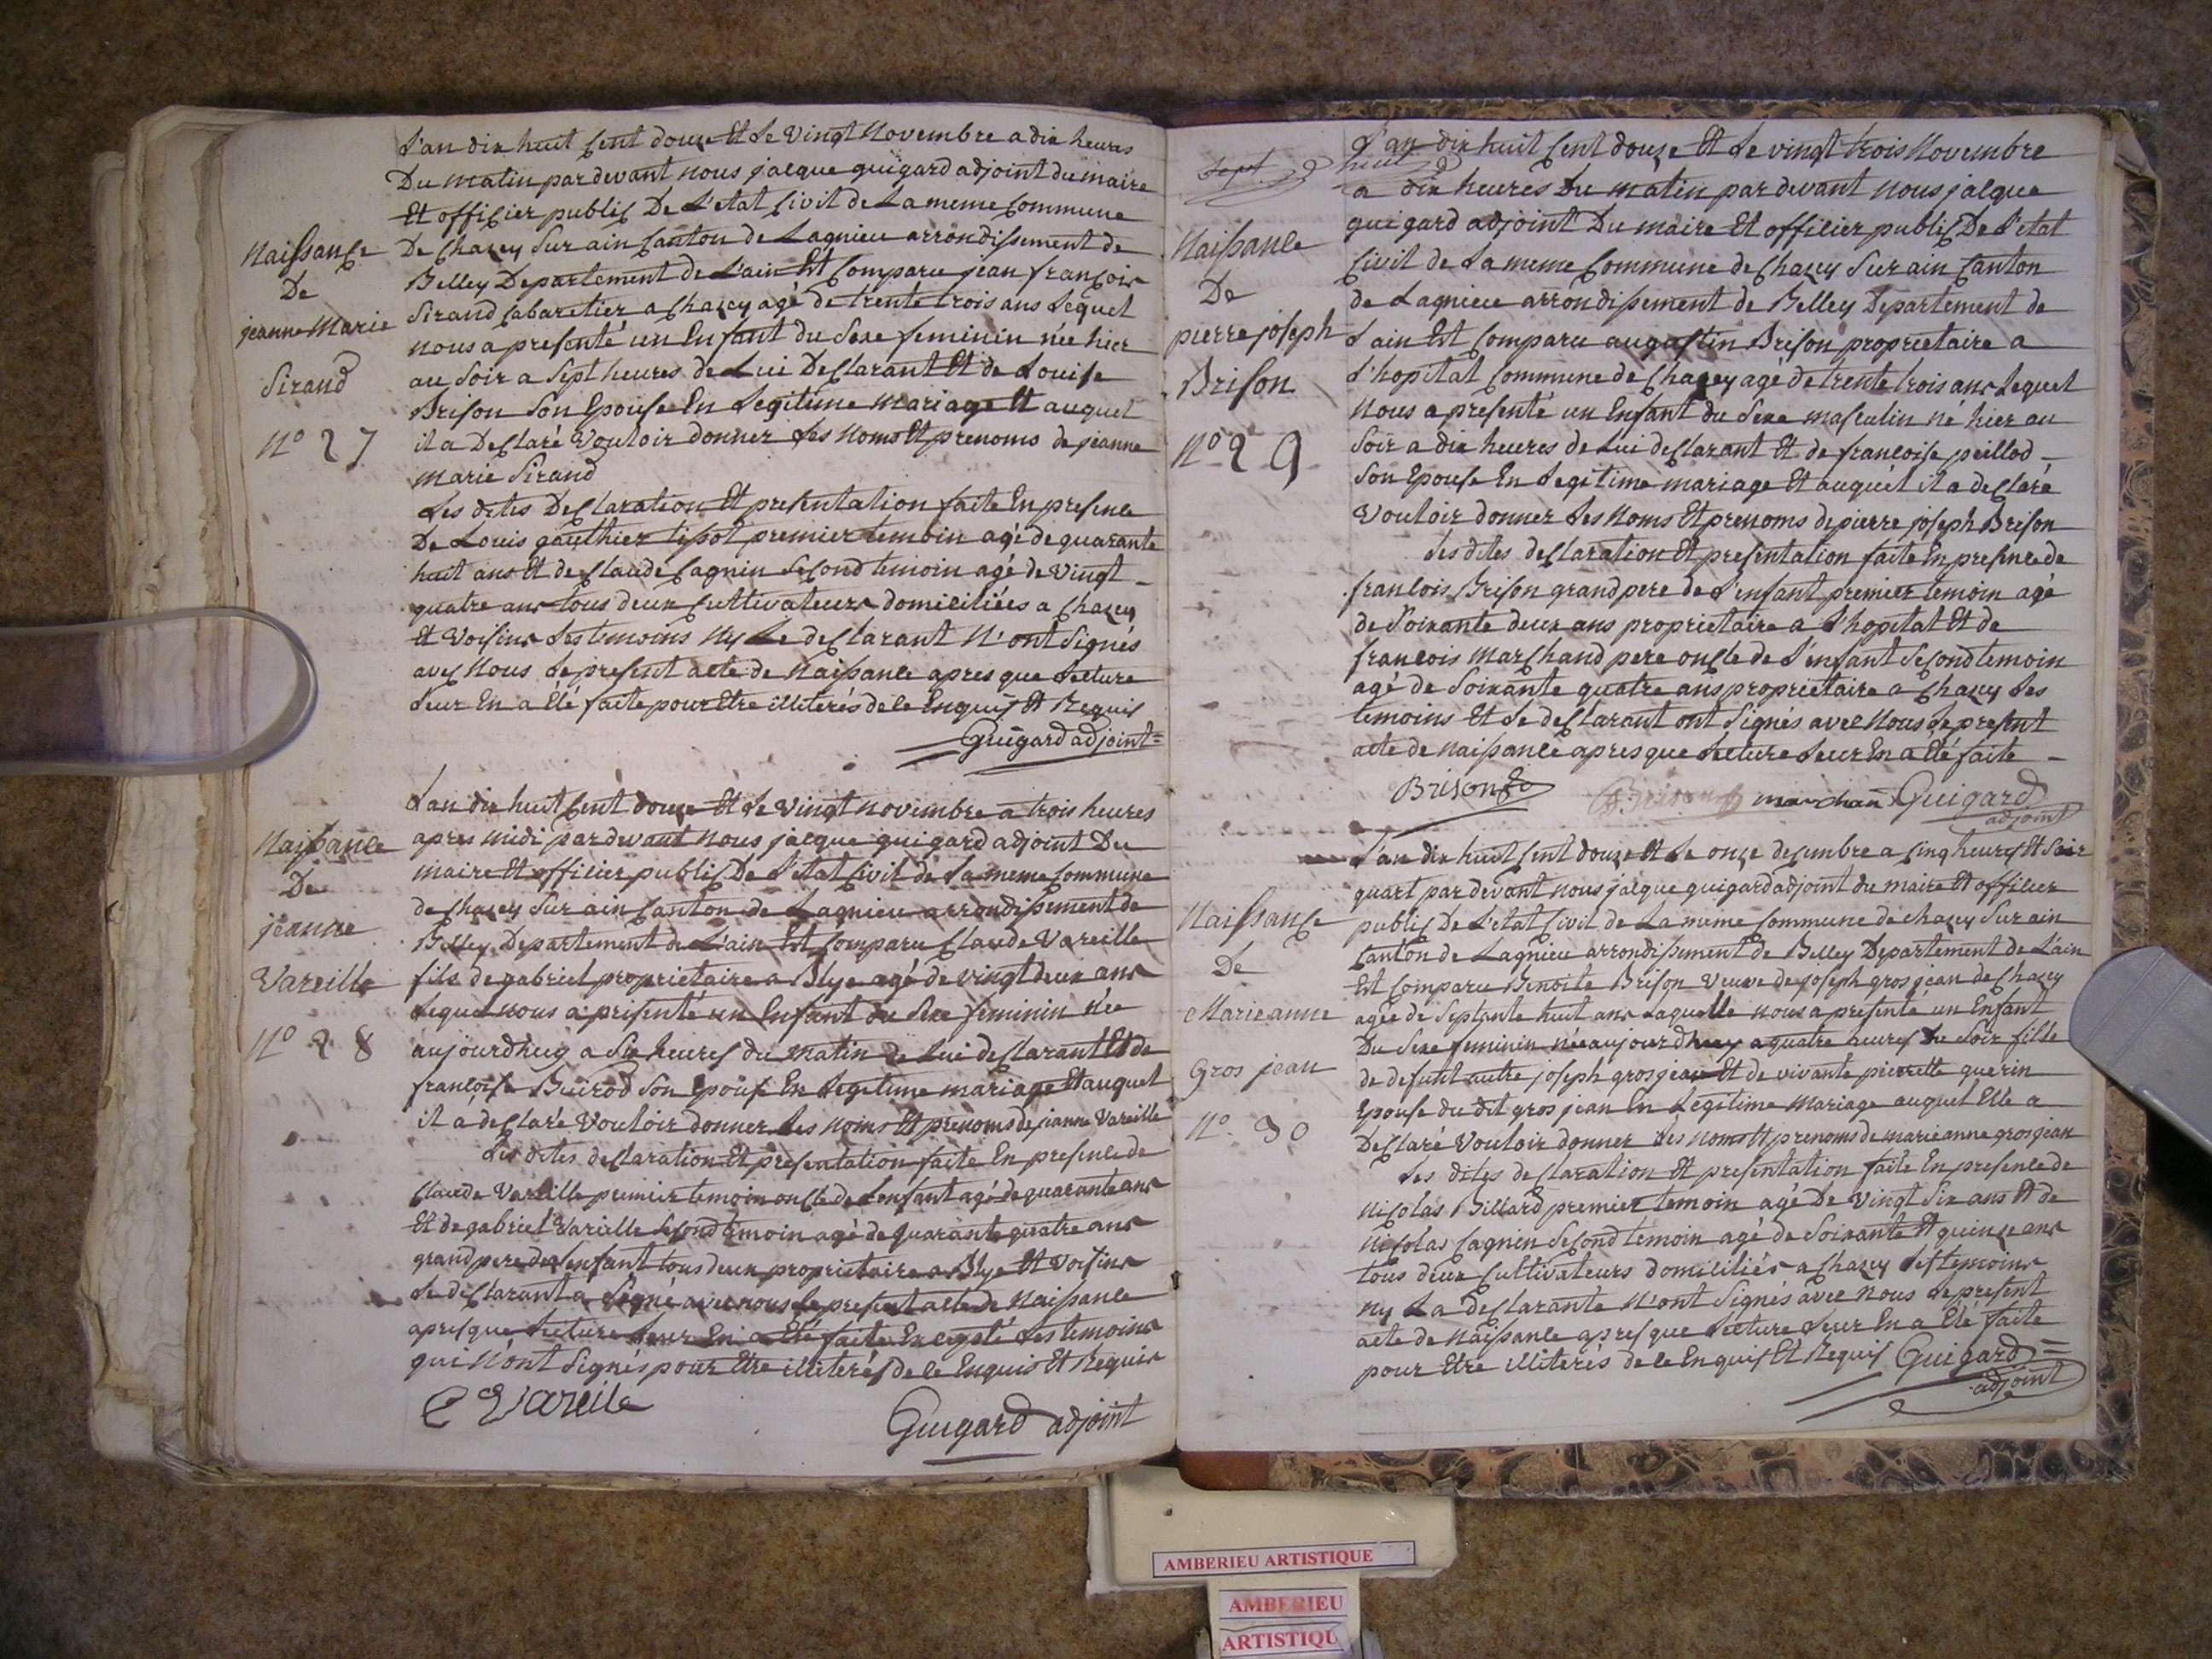 L'an dix huit Cent douze Et Le Vingt Novembre a dix heures
Du matin par devant nous jacque guigard adjoint du maire
Et officier public De L'etat Civil de La meme Commune
De Chazey Sur ain Canton de Lagnieu arrondissement de
Belley Departement de L'ain Est Comparu jean françois
Sirand Cabaretier a Chazey agé de trente trois ans Lequel
nous a presenté un Enfant du Sexe feminin née hier
au Soir a Sept heures de Lui Declarant Et de Louise
Brison Son Epouse En Legitime mariage Et auquel
il a Declaré Vouloir donner Les Noms Et prenoms de jeanne
marie Sirand
Les dites Declaration Et presentation faite En presence
De Louis gauthier tissot premier temoin agé de quarante
huit ans Et de Claude Cagnin Second temoin agé de Vingt
quatre ans tous deux Cultivateurs domiciliées a Chazey
Et Voisins Les temoins Ny Le declarant N'ont Signés
avec Nous Le present acte de Naissance apres que Lecture
Leur En a Eté faite pour Etre illiterés de ce Enquis Et Requis
Guigard adjoint
Naissance
De
jeanne Marie
Sirand
N° 27
L'an dix huit Cent douze Et Le Vingt novembre a trois heures
apres midi par devant Nous jacque guigard adjoint Du
maire Et officier public De L'etat Civil de La meme Commune
de Chazey Sur ain Canton de Lagnieu arrondissement de
Belley Departement de L'ain Est Comparu Claude Vareille
fils de gabriel proprietaire a Blye agé de vingt deux ans
Lequel nous a presenté un Enfant du Sexe feminin née
aujourdhuy a Six heures du matin de Lui declarant Et de
francoise Son Epouse En Legitime mariage Et auquel
il a declaré Vouloir donner Les Noms Et prenoms de jeanne Vareille
Les dites declaration Et presentation faite En presence de
Claude Vareille premier temoin oncle de Lenfant agé de quarante ans
Et de gabriel Varielle Second temoin agé de quarante quatre ans
grand pere de Lenfant tous deux proprietaire a Blye Et Voisins
Le declarant a Signé avec nous Le present acte de Naissance
apres que Lecture Leur En a Eté faite Excepté Les temoins
qui N'ont Signés pour Etre illiterés de ce Enquis Et Requis
C Vareile
Guigard adjoint
Naissance
De
jeanne
Vareille
N° 28
L'an dix huit Cent douze Et Le vingt trois Novembre
a dix heures Du matin par devant Nous jacque
guigard adjoint Du maire Et officier public De L'etat
Civil de La meme Commune de Chazey Sur ain Canton
de Lagnieu arrondissement de Belley Departement de
Lain Est Comparu augustin Brison proprietaire a
L'hopital Commune de Chazey agé de trente trois ans Lequel
Nous a presenté un Enfant du Sexe masculin né hier au
Soir a dix heures de Lui declarant Et de francoise peillod
Son Epouse En Legitime mariage Et auquel il a declaré
Vouloir donner Les Noms Et prenoms de pierre joseph Brison
Les dites declaration Et presentation faite En presence de
francois Brison grand pere de L'enfant premier temoin agé
de Soixante deux ans proprietaire a L'hopital Et de
francois Marchand pere oncle de L'enfant Second temoin
agé de Soixante quatre ans proprietaire a Chazey Les
temoins Et Le declarant ont Signés avec Nous Le present
acte de Naissance apres que Lecture Leur En a Eté faite
Brison marchan Guigard
adjoint
Sept huit
Naissance
De
pierre joseph
Brison
N° 29
L'an dix huit Cent douze Et Le onze decembre a Cinq heures Et
quart par devant nous jacque guigard adjoint du maire Et officier
public De L'etat Civil de La meme Commune de chazey Sur ain
Canton de Lagnieu arrondissement de Belley Departement de L'ain
Est Comparu Benoite Brison Veuve de joseph gros jean de Chazey
agée de Septante huit ans Laquelle nous a presenté un Enfant
Du Sexe feminin née aujourdhuy a quatre heures Du Soir fille
de defunt autre joseph grosjean Et de vivante pierrette guerin
Epouse du dit gros jean En Legitime Mariage auquel Elle a
Declaré Vouloir donner Les Noms Et prenoms de marieanne grosjean
Les dites declaration Et presentation faite En presence de
Nicolas Billard premier temoin agé De Vingt Six ans Et de
Nicolas Cagnin Second temoin agé de Soixante Et quinze ans
tous deux Cultivateurs domiciliés a Chazey Les temoins
ny La declarante N'ont Signés avec nous Le present
acte de Naissance apres que Lecture Leur En a Eté faite
pour Etre illiterés de ce Enquis Et Requis Guigard
adjoint
Naissance
De
Marieanne
Gros jean
N° 30
AMBERIEU ARTISTIQUE
AMBERIEU
ARTISTIQU